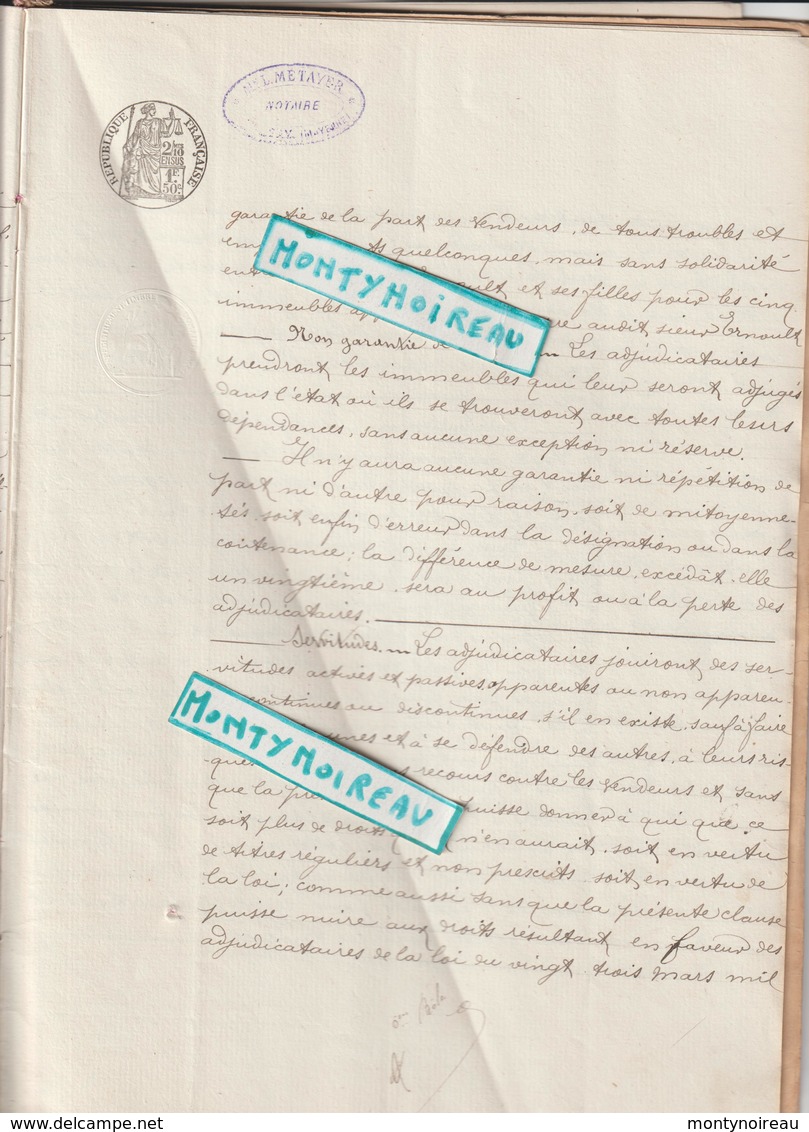 Mᵉ L. METAYER
NOTAIRE
(MAYENNE)
RÉPUBLIQUE FRANÇAISE
2/10
EN SUS
1F.
50c.
garantie de la part des Vendeurs, de tous troubles et
quelconques, mais sans solidarité
et ses filles pour les cinq
immeubles audit sieur Ernoult
MONTYNOIREAU
Non garantie Les adjudicataires
prendront les immeubles qui leur seront adjugés
dans l'état où ils se trouveront avec toutes leurs
dépendances, sans aucune exception ni réserve.
Il n'y aura aucune garantie ni répétition de
part ni d'autre pour raison, soit de mitoyenne-
tés soit enfin d'erreur dans la désignation ou dans la
contenance; la différence de mesure, excédât-elle
un vingtième, sera au profit ou à la perte des
adjudicataires.
Servitudes. — Les adjudicataires jouiront des ser-
vitudes actives et passives apparentes ou non apparen-
continues ou discontinues, s'il en existe, sauf à faire
unes et à se défendre des autres, à leurs ris-
MONTYNOIREAU
recours contre les Vendeurs et sans
que la puisse donner à qui que ce
soit plus de droits n'en aurait, soit en vertu
de titres réguliers et non prescrits soit en vertu de
la loi; comme aussi sans que la présente clause
puisse nuire aux droits résultant en faveur des
adjudicataires de la loi du vingt trois Mars mil
Delcampe.net
montynoireau